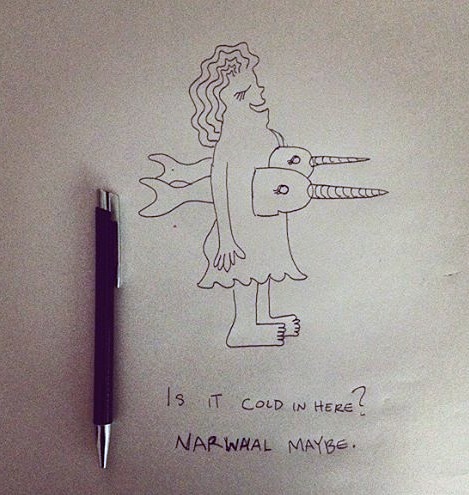 Is IT COLD IN HERE?
NARWHAL MAYBE.